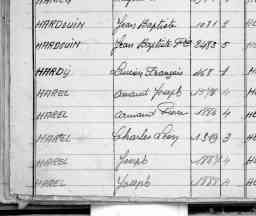 HARDOUIN Jean Baptiste 1031 2
HARDOUIN Jean Baptiste 2493 5
HARDY Lucien François 468 1
HAREL Armand Joseph 4
HAREL Armand Pierre 1896 4
HAREL Charles Léon 1349 3
HAREL Joseph 1887 4
HAREL Joseph 1888 4